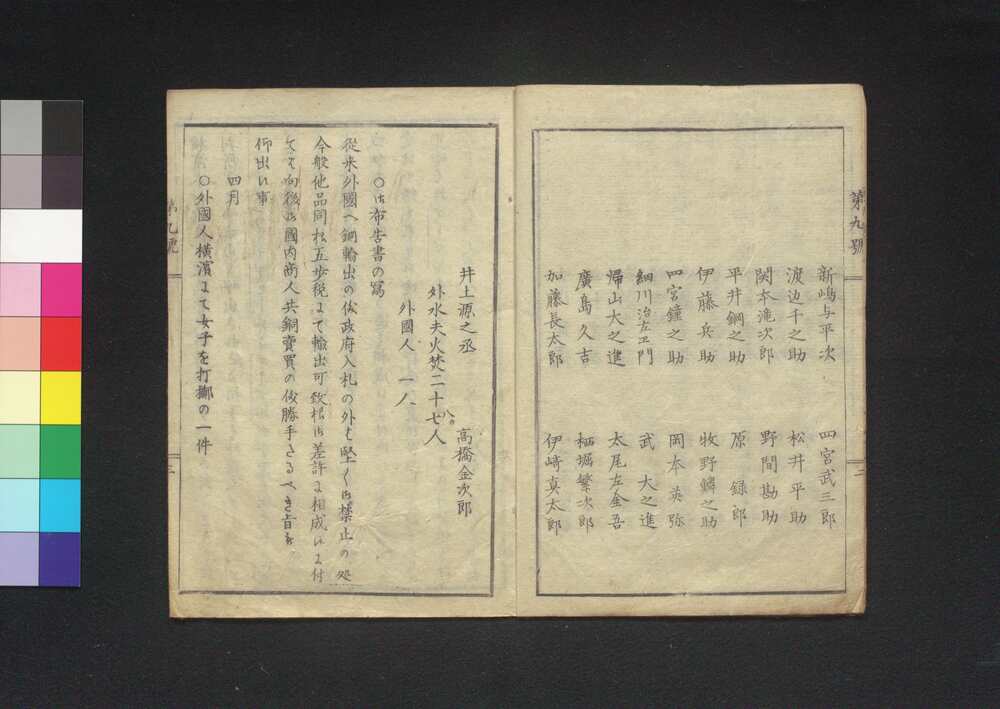 第九號
新嶋与平次　四宮武三郎
渡边千之助　松井平助
関本滝次郎　野間勘助
平井鋼之助　原録郎
伊藤兵助　牧野鱗之助
四宮鐘之助　岡本英弥
細川治左ヱ門　武大之進
帰山大之進　太尾左金吾
廣島久吉　栖堀繁次郎
加藤長太郎　伊崎真太郎
二
井土源之丞　高橋金次郎
外水夫火焚二十七八人
外國人　一人
〇御布告書の寫
従来外國へ銅輸出の儀政府入札の外も堅く御禁止の処
今般他品同様五歩税にて輸出可致様御差許に相成候に付
ては向後御國内商人共銅賣買の儀勝手たるべき旨被
仰出候事
四月
〇外國人横濱にて女子を打擲の一件
第九號
三